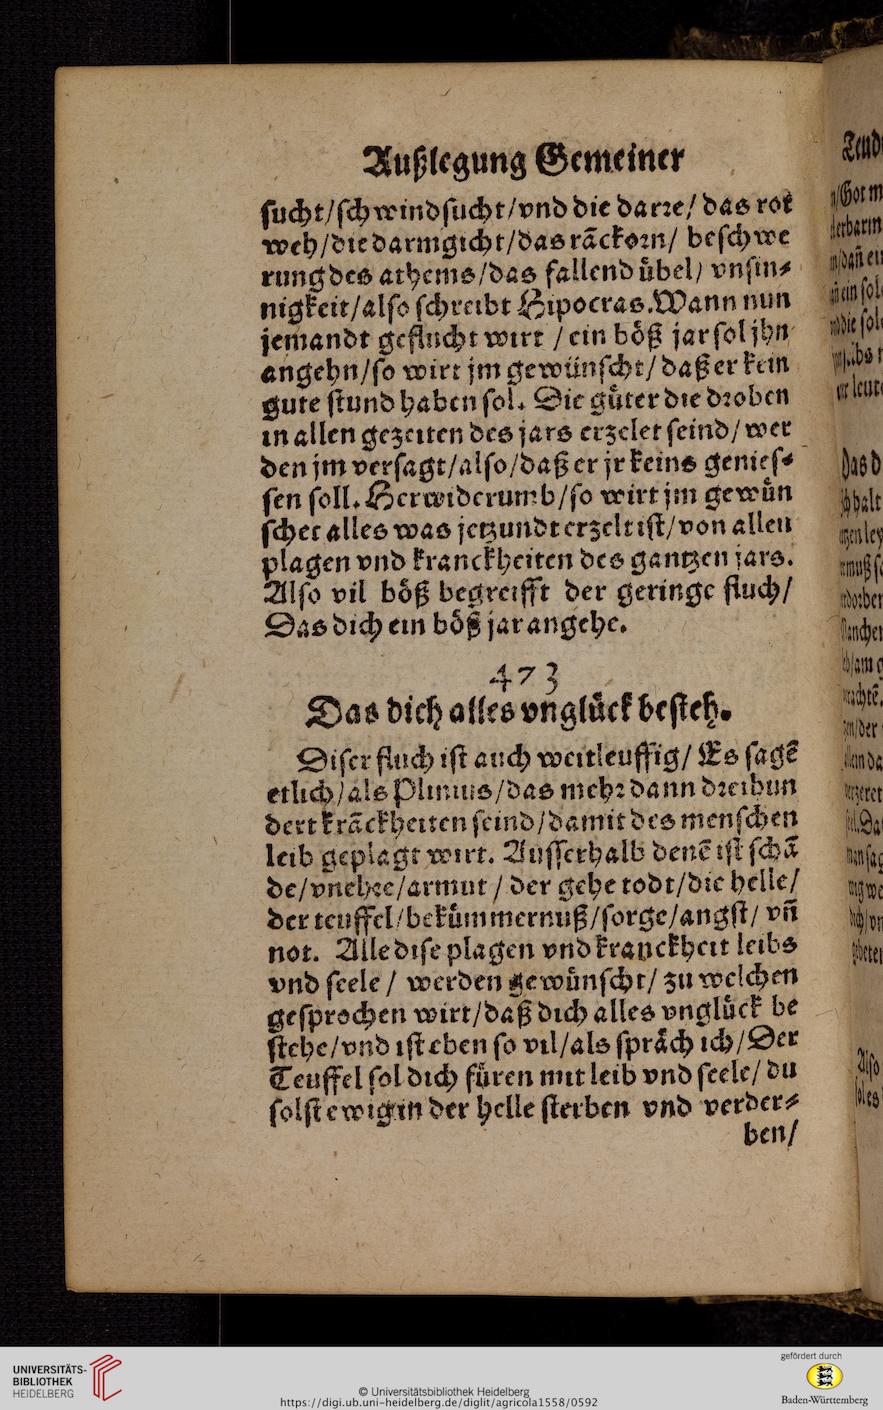 Außlegung Gemeiner
ſucht/ſchwindſucht/vnd die darꝛe/das rot
weh/die darmgicht/das rãckoꝛn/ beſchwe
rung des athems/das fallend uͤbel/ vnſin⸗
nigkeit/alſo ſchreibt Hipocras.Wann nun
jemandt geflucht wirt / ein boͤß jar ſol jhn
angehn/ſo wirt jm gewünſcht/daß er kein
gute ſtund haben ſol. Die guͤter die dꝛoben
in allen gezeiten des jars erzelet ſeind/wer
den jm verſagt/alſo/daß er jr keins genieſ⸗
ſen ſoll. Herwiderumb/ſo wirt jm gewuͤn
ſchet alles was jetzundt erzelt iſt/von allen
plagen vnd kranckheiten des gantzen jars.
Alſo vil boͤß begreifft der geringe fluch/
Das dich ein boͤß jar angehe.
473
Das dich alles vngluͤck beſteh.
Diſer fluch iſt auch weitleuffig/ Es ſagẽ
etlich/als Plinius/das mehꝛ dann dꝛeihun
dert krãckheiten ſeind/damit des menſchen
leib geplagt wirt. Auſſerhalb denẽ iſt ſchã
de/vnehꝛe/armut / der gehe todt/die helle/
der teuffel/bekuͤmmernuß/ſorge/angſt/ vñ
not. Alle diſe plagen vnd kranckheit leibs
vnd ſeele / werden gewuͤnſcht/ zu welchen
geſprochen wirt/daß dich alles vngluͤck be
ſtehe/vnd iſt eben ſo vil/als ſpraͤch ich/Der
Teuffel ſol dich fuͤren mit leib vnd ſeele/ du
ſolſt ewig in der helle ſterben vnd verder⸗
ben/
UNIVERSITÄTS-
BIBLIOTHEK
HEIDELBERG
© Universitätsbibliothek Heidelberg
https://digi.ub.uni-heidelberg.de/diglit/agricola1558/0592
gefördert durch
Baden-Württemberg